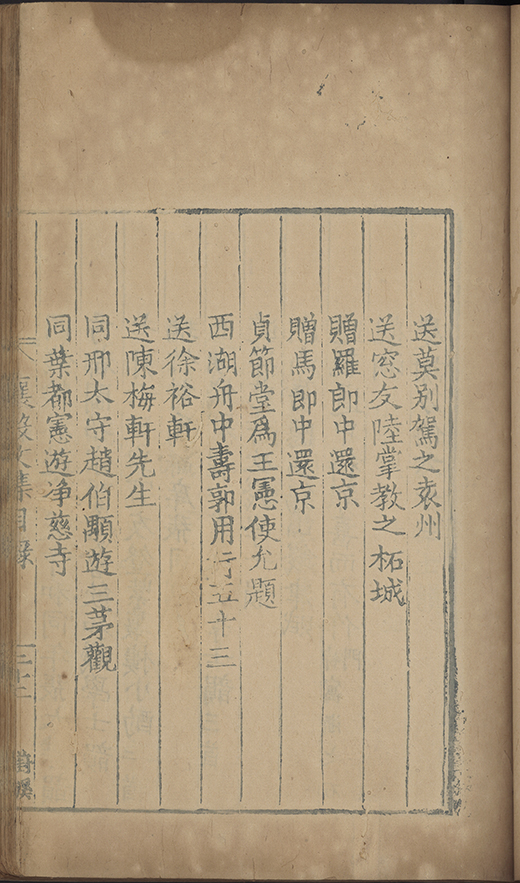 送莫别駕之袁州
送窓友陸掌教之柘城
贈羅郎中還京
贈馬郎中還京
貞節堂爲王憲使允題
西湖舟中壽郭用行五十三
送徐裕軒
送陳梅軒先生
同邢太守趙伯顒遊三茅觀
同葉都憲遊净慈寺
襄毅文集目錄